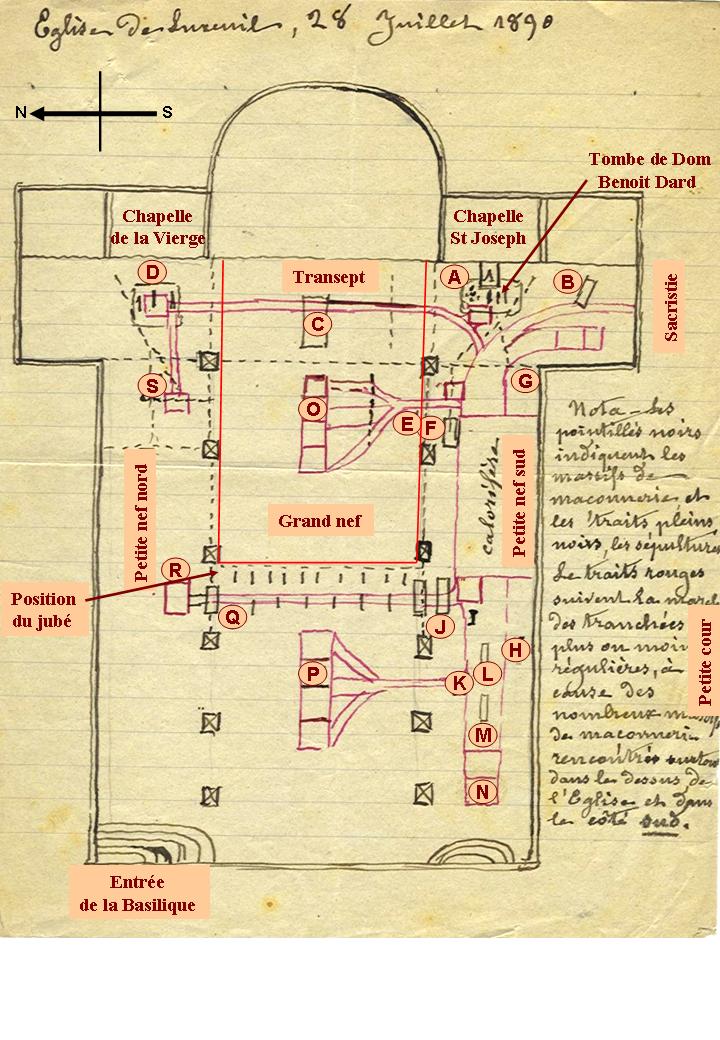 Eglise de Luxeuil, 28 Juillet 1890
N S
Tombe de Dom
Benoit Dard
Chapelle
de la Vierge
Chapelle
St Joseph
D
Transept
A
B
Sacristie
C
S
O
E
F
G
Petite nef nord
Grand nef
calorifère
Petite nef sud
Nota - Les
pointillés noirs
indiquent les
massifs de
maçonnerie et
les traits pleins
noirs, les sépultures
Le traits rouges
suivent la march
des tranchées
plus ou moin
régulières, à
cause des
nombreux
de maçonnerie
rencontrés surtou
dans le dessus de
l'Eglise et dans
le côté sud.
R
Position
du jubé
Q
J
I
H
P
K
L
M
N
Petite cour
Entrée
de la Basilique